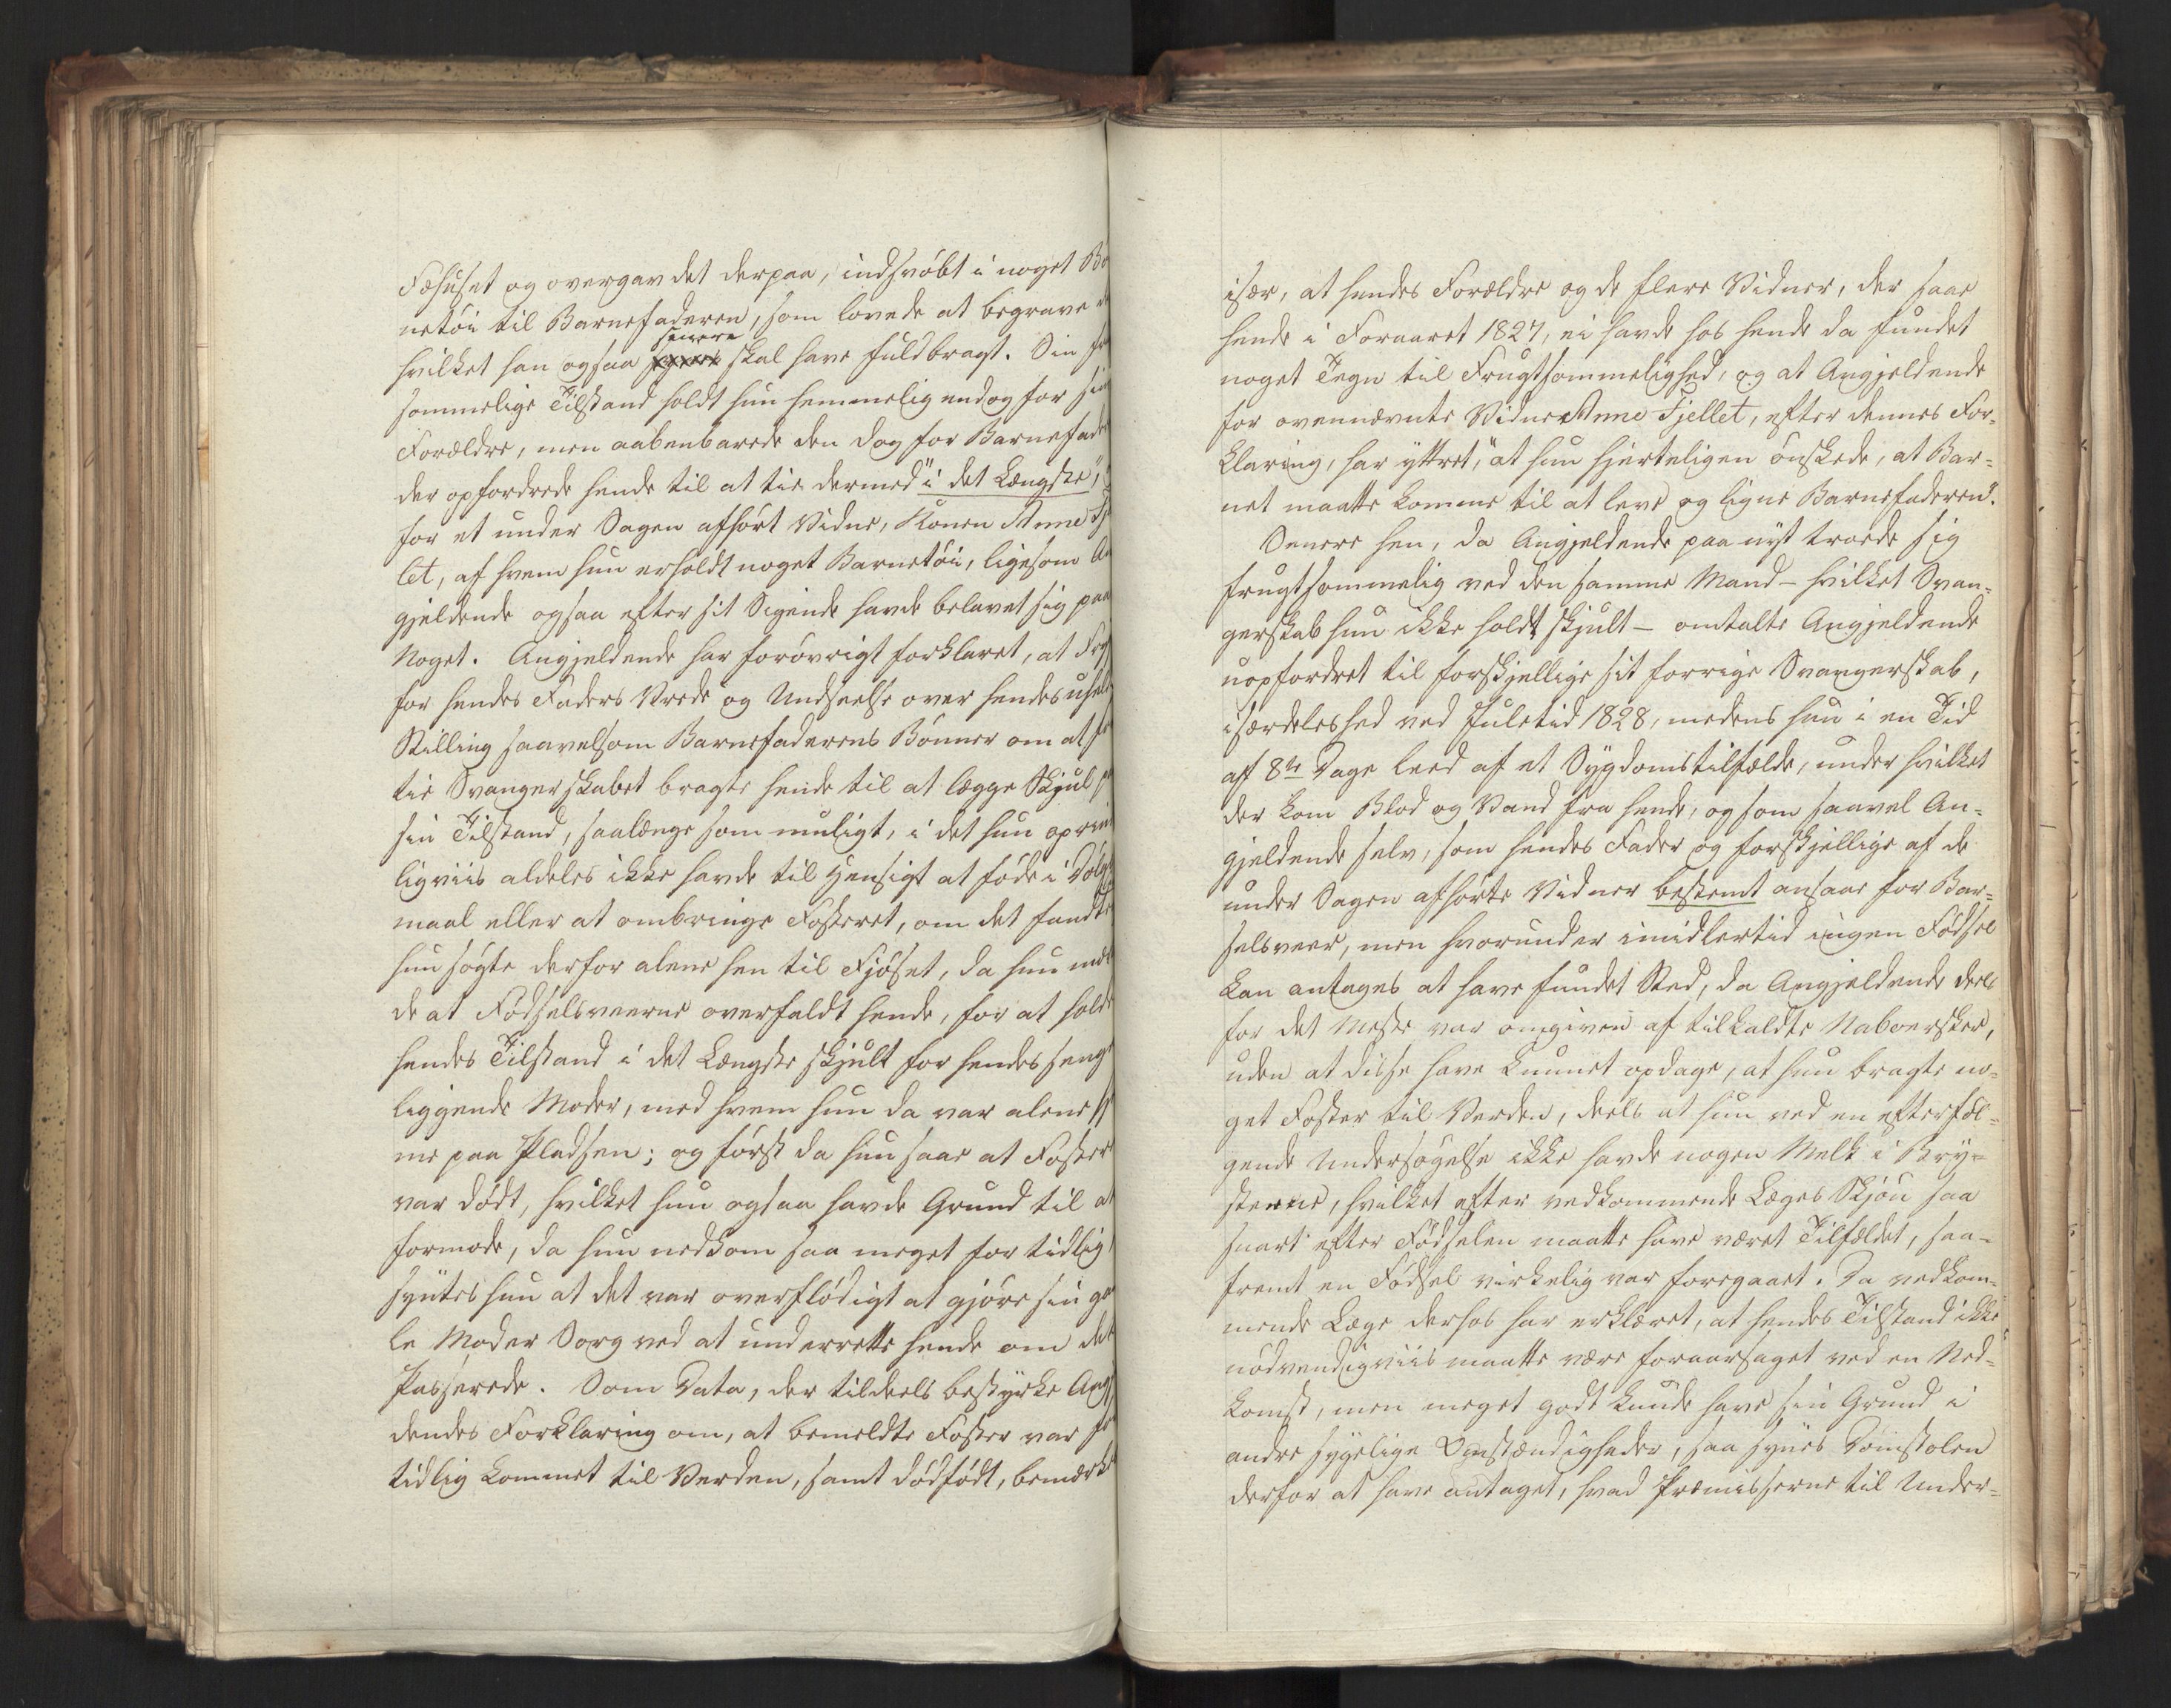 Fæhuset og overgav det derpaa, indsvøbt i noget Bø
netøi til Barnefaderen, som lovede at begrave
senere
hvilket han ogsaa skal have fuldbragt. Sin
sommelige Tilstand holdt hun hemmelig endog for
Forældre, men aabenbarede den dog for Barnefad
der opfordrede hende til at tie dermed "i det Længste",
for et under Sagen afhørt Vidne, Konen Anne
let, af hvem hun erholdt noget Barnetøi, ligesom An
gjeldende ogsaa efter sit Sigende havde belavet sig paa
Noget. Angjeldende har forøvrigt forklaret, at Fry
for hendes Faders Vrede og Undseelse over hendes uhel
Stilling saavelsom Barnefaderens Bønner om at
tie Svangerskabet bragte hende til at lægge Skjul
sin Tilstand, saalænge som muligt, i det hun oprin
ligviis aldeles ikke havde til Hensigt at føde i Dølgs
maal eller at ombringe Fosteret, om det fandtes
hun søgte derfor alene hen til Fjøset, da hun mær
de at Fødselsveerne overfaldt hende, for at holde
hendes Tilstand i det Længste skjult for hendes senge
liggende Moder, med hvem hun da var alene
me paa Pladsen; og først da hun saae at Fosteret
var dødt, hvilket hun ogsaa havde Grund til at
formode, da hun nedkom saa meget for tidlig,
syntes hun at det var overflødigt at gjøre sin ga
le Moder Sorg ved at underrette hende om det
Passerede. Som Data, der tildeels bestyrke Angj
dendes Forklaring om, at bemeldte Foster var
tidlig kommet til Verden, samt dødfødt, bemærkes
især, at hendes Forældre og de flere Vidner, der saae
hende i Foraaret 1827, ei havde hos hende da fundet
noget Tegn til Frugtsommelighed, og at Angjeldende
for ovennævnte Vidne Anne Fjellet, efter dennes For-
klaring, har yttret, "at hun hjerteligen ønskede, at Bar-
net maatte komme til at leve og ligne Barnefaderen".
Senere hen, da Angjeldende paa nyt troede sig
frugtsommelig ved den samme Mand - hvilket Svan-
gerskab hun ikke holdt skjult - omtalte Angjeldende
uopfordret til forskjellige sit forrige Svangerskab,
isærdeleshed ved Juletid 1828, medens hun i en Tid
af 8te Dage leed af et Sygdomstilfælde, under hvilket
der kom Blod og Vand fra hende, og som saavel An-
gjeldende selv, som hendes Fader og forskjellige af de
under Sagen afhørte Vidner bestemt ansaae for Bar-
selsveer, men hvorunder imidlertid ingen Fødsel
kan antages at have fundet Sted, da Angjeldende deels
for det Meste var omgiven af tilkaldte Naboersker,
uden at disse have kunnet opdage, at hun bragte no-
get Foster til Verden, deels at hun ved en efterføl-
gende Undersøgelse ikke havde nogen Melk i Bry-
sterne, hvilket efter vedkommende Læges Skjøn saa
snart efter Fødselen maatte have været Tilfældet, saa-
fremt en Fødsel virkelig var foregaaet. Da vedkom-
mende Læge derhos har erklæret, at hendes Tilstand ikke
nødvendigviis maatte være foraarsaget ved en Ned-
komst, men meget godt kunde have sin Grund i
andre sygelige Omstændigheder, saa synes Domstolen
derfor at have antaget, hvad Præmisserne til Under-